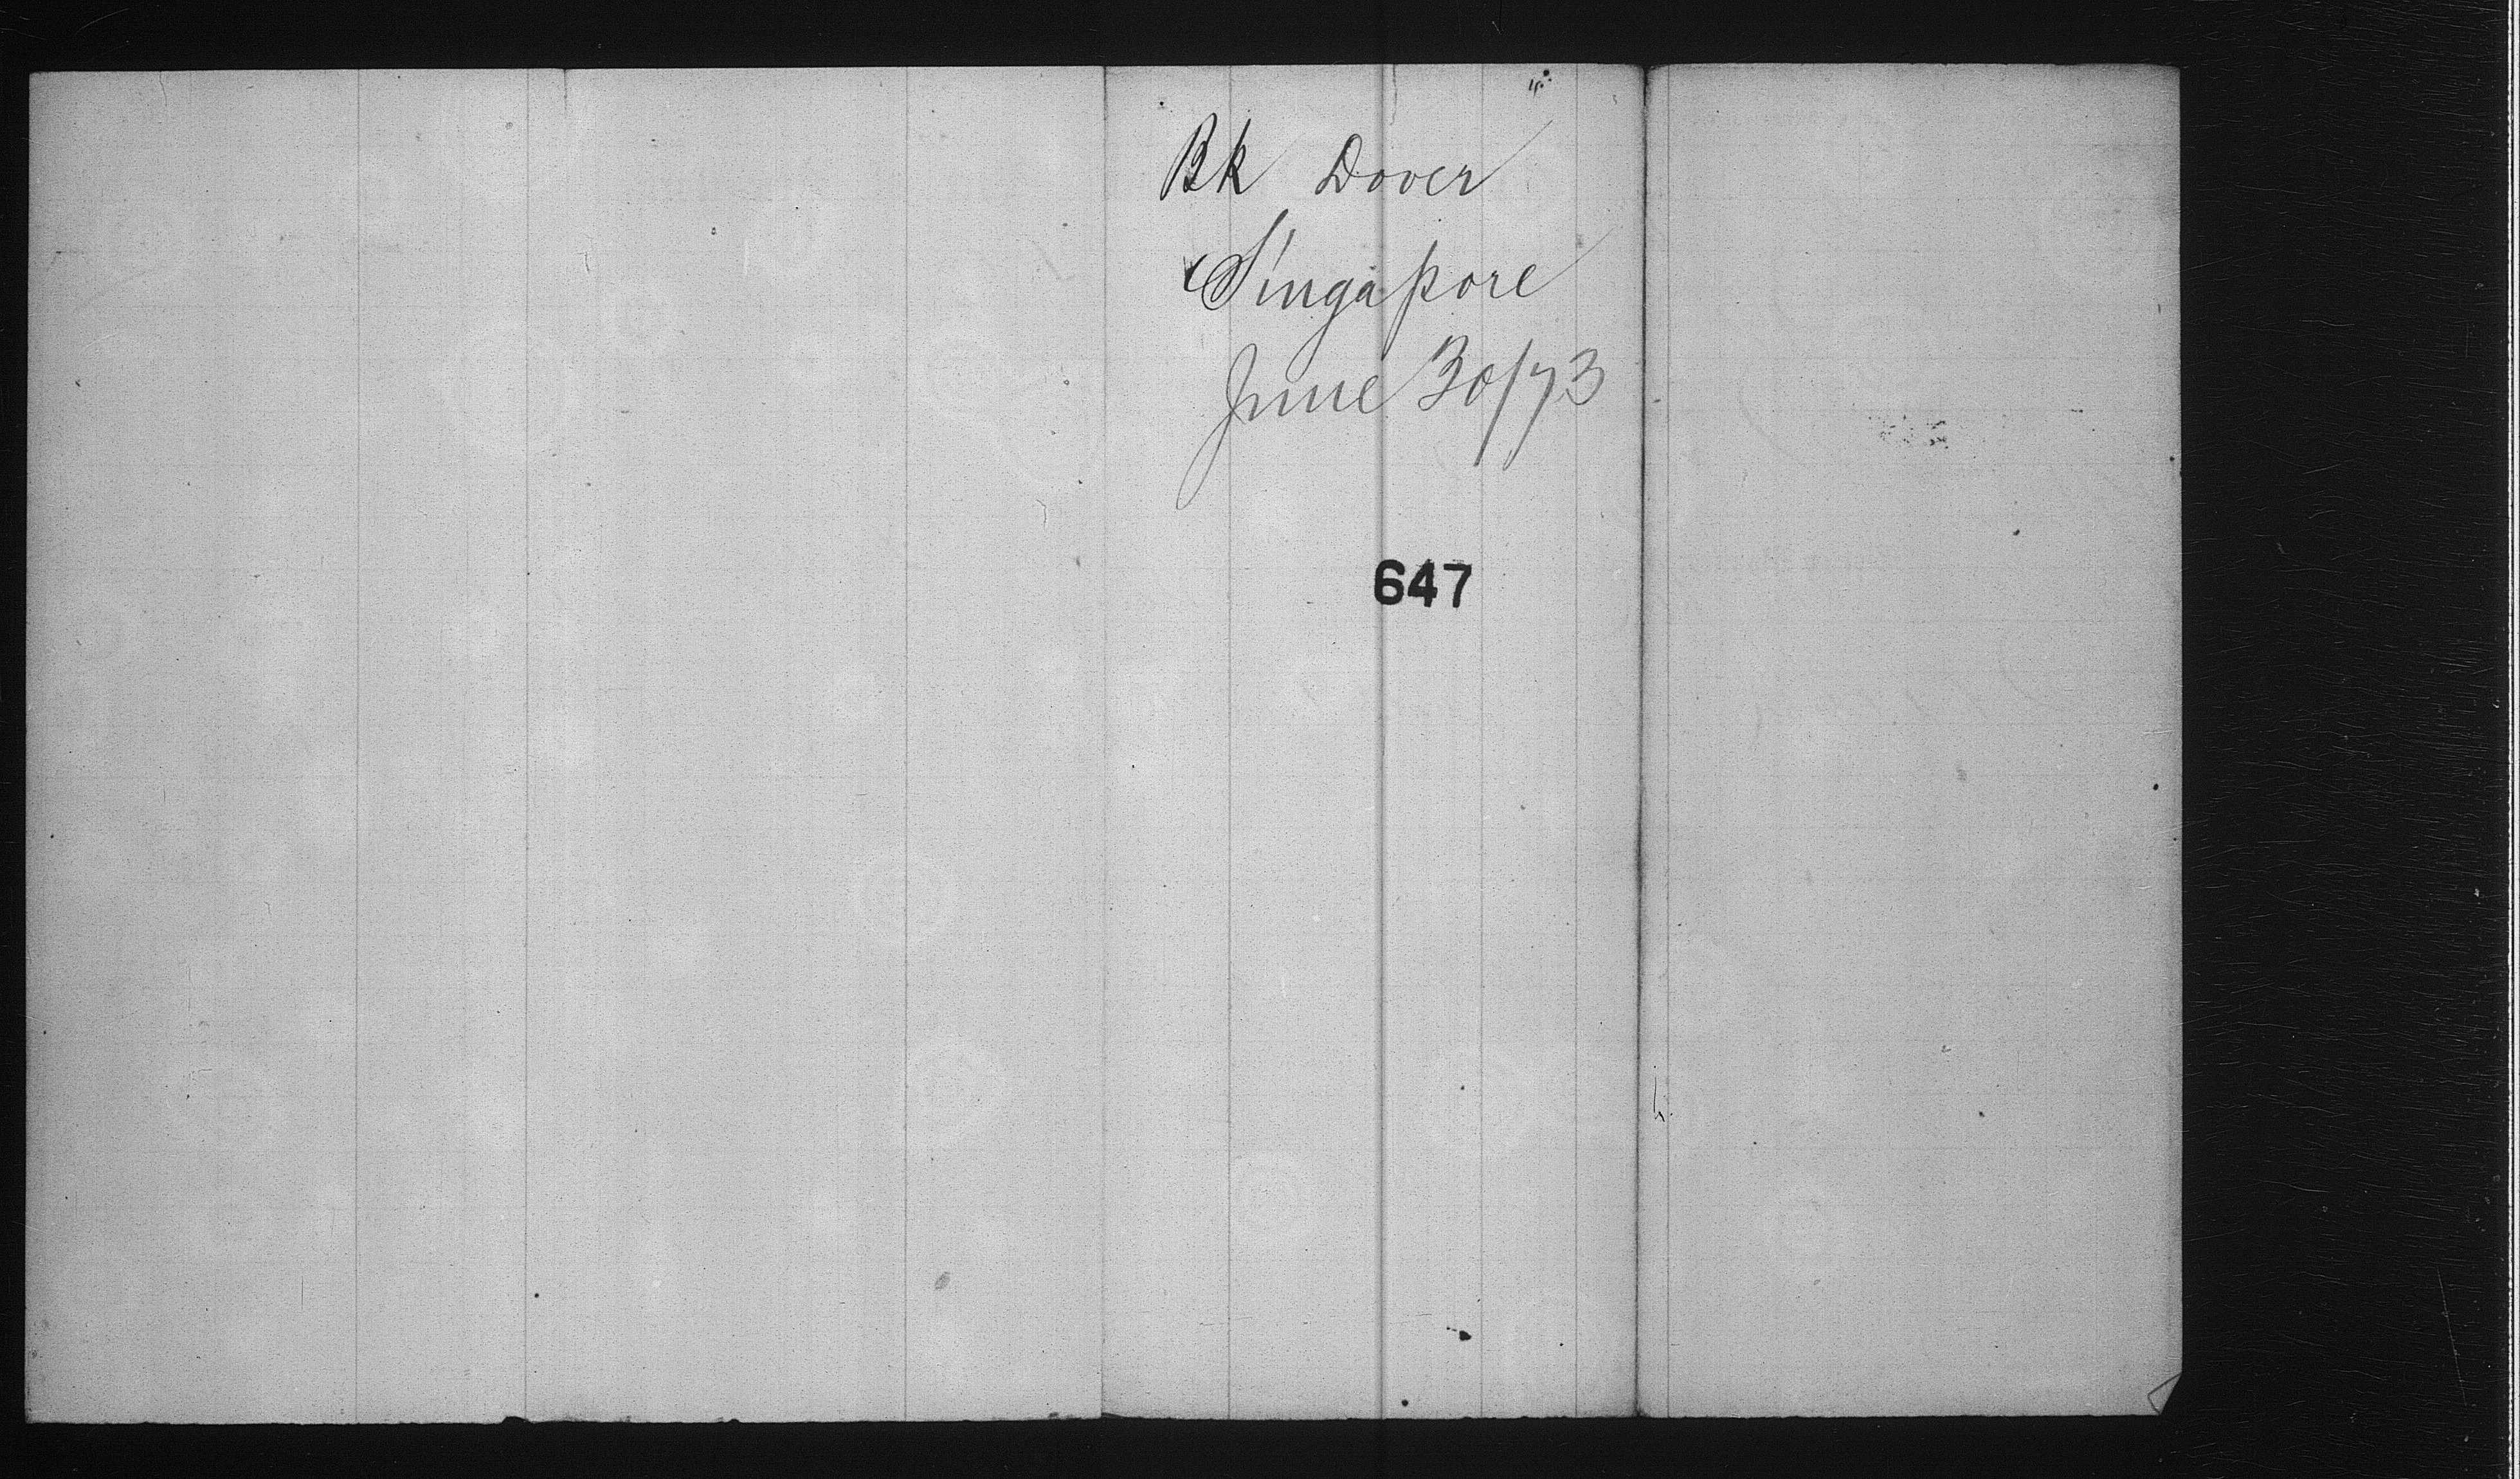 Bk Dover
Singapore
June 30/73
647